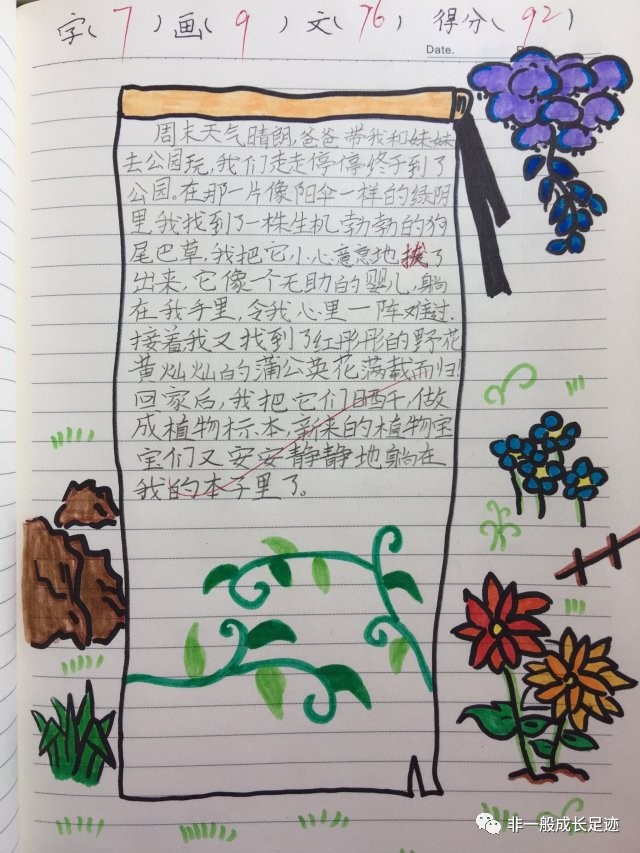 字(7)画(9)文(76) 得分(92)
Date.
周末天气晴朗,爸爸带我和妹妹
去公园玩,我们走走停停终于到了
公园。在那一片像阳伞一样的绿阴
里,我找到了一株生机勃勃的狗
尾巴草,我把它小心意意地拔了
出来,它像一个无助的婴儿,躺
在我手里,令我心里一阵难过.
接着我又找到了红彤彤的野花
黄灿灿的蒲公英花满载而归
回家后,我把它们晒干,做
成植物标本,新来的植物宝
宝们又安安静静地躺在
我的本子里了。
非一般成长足迹